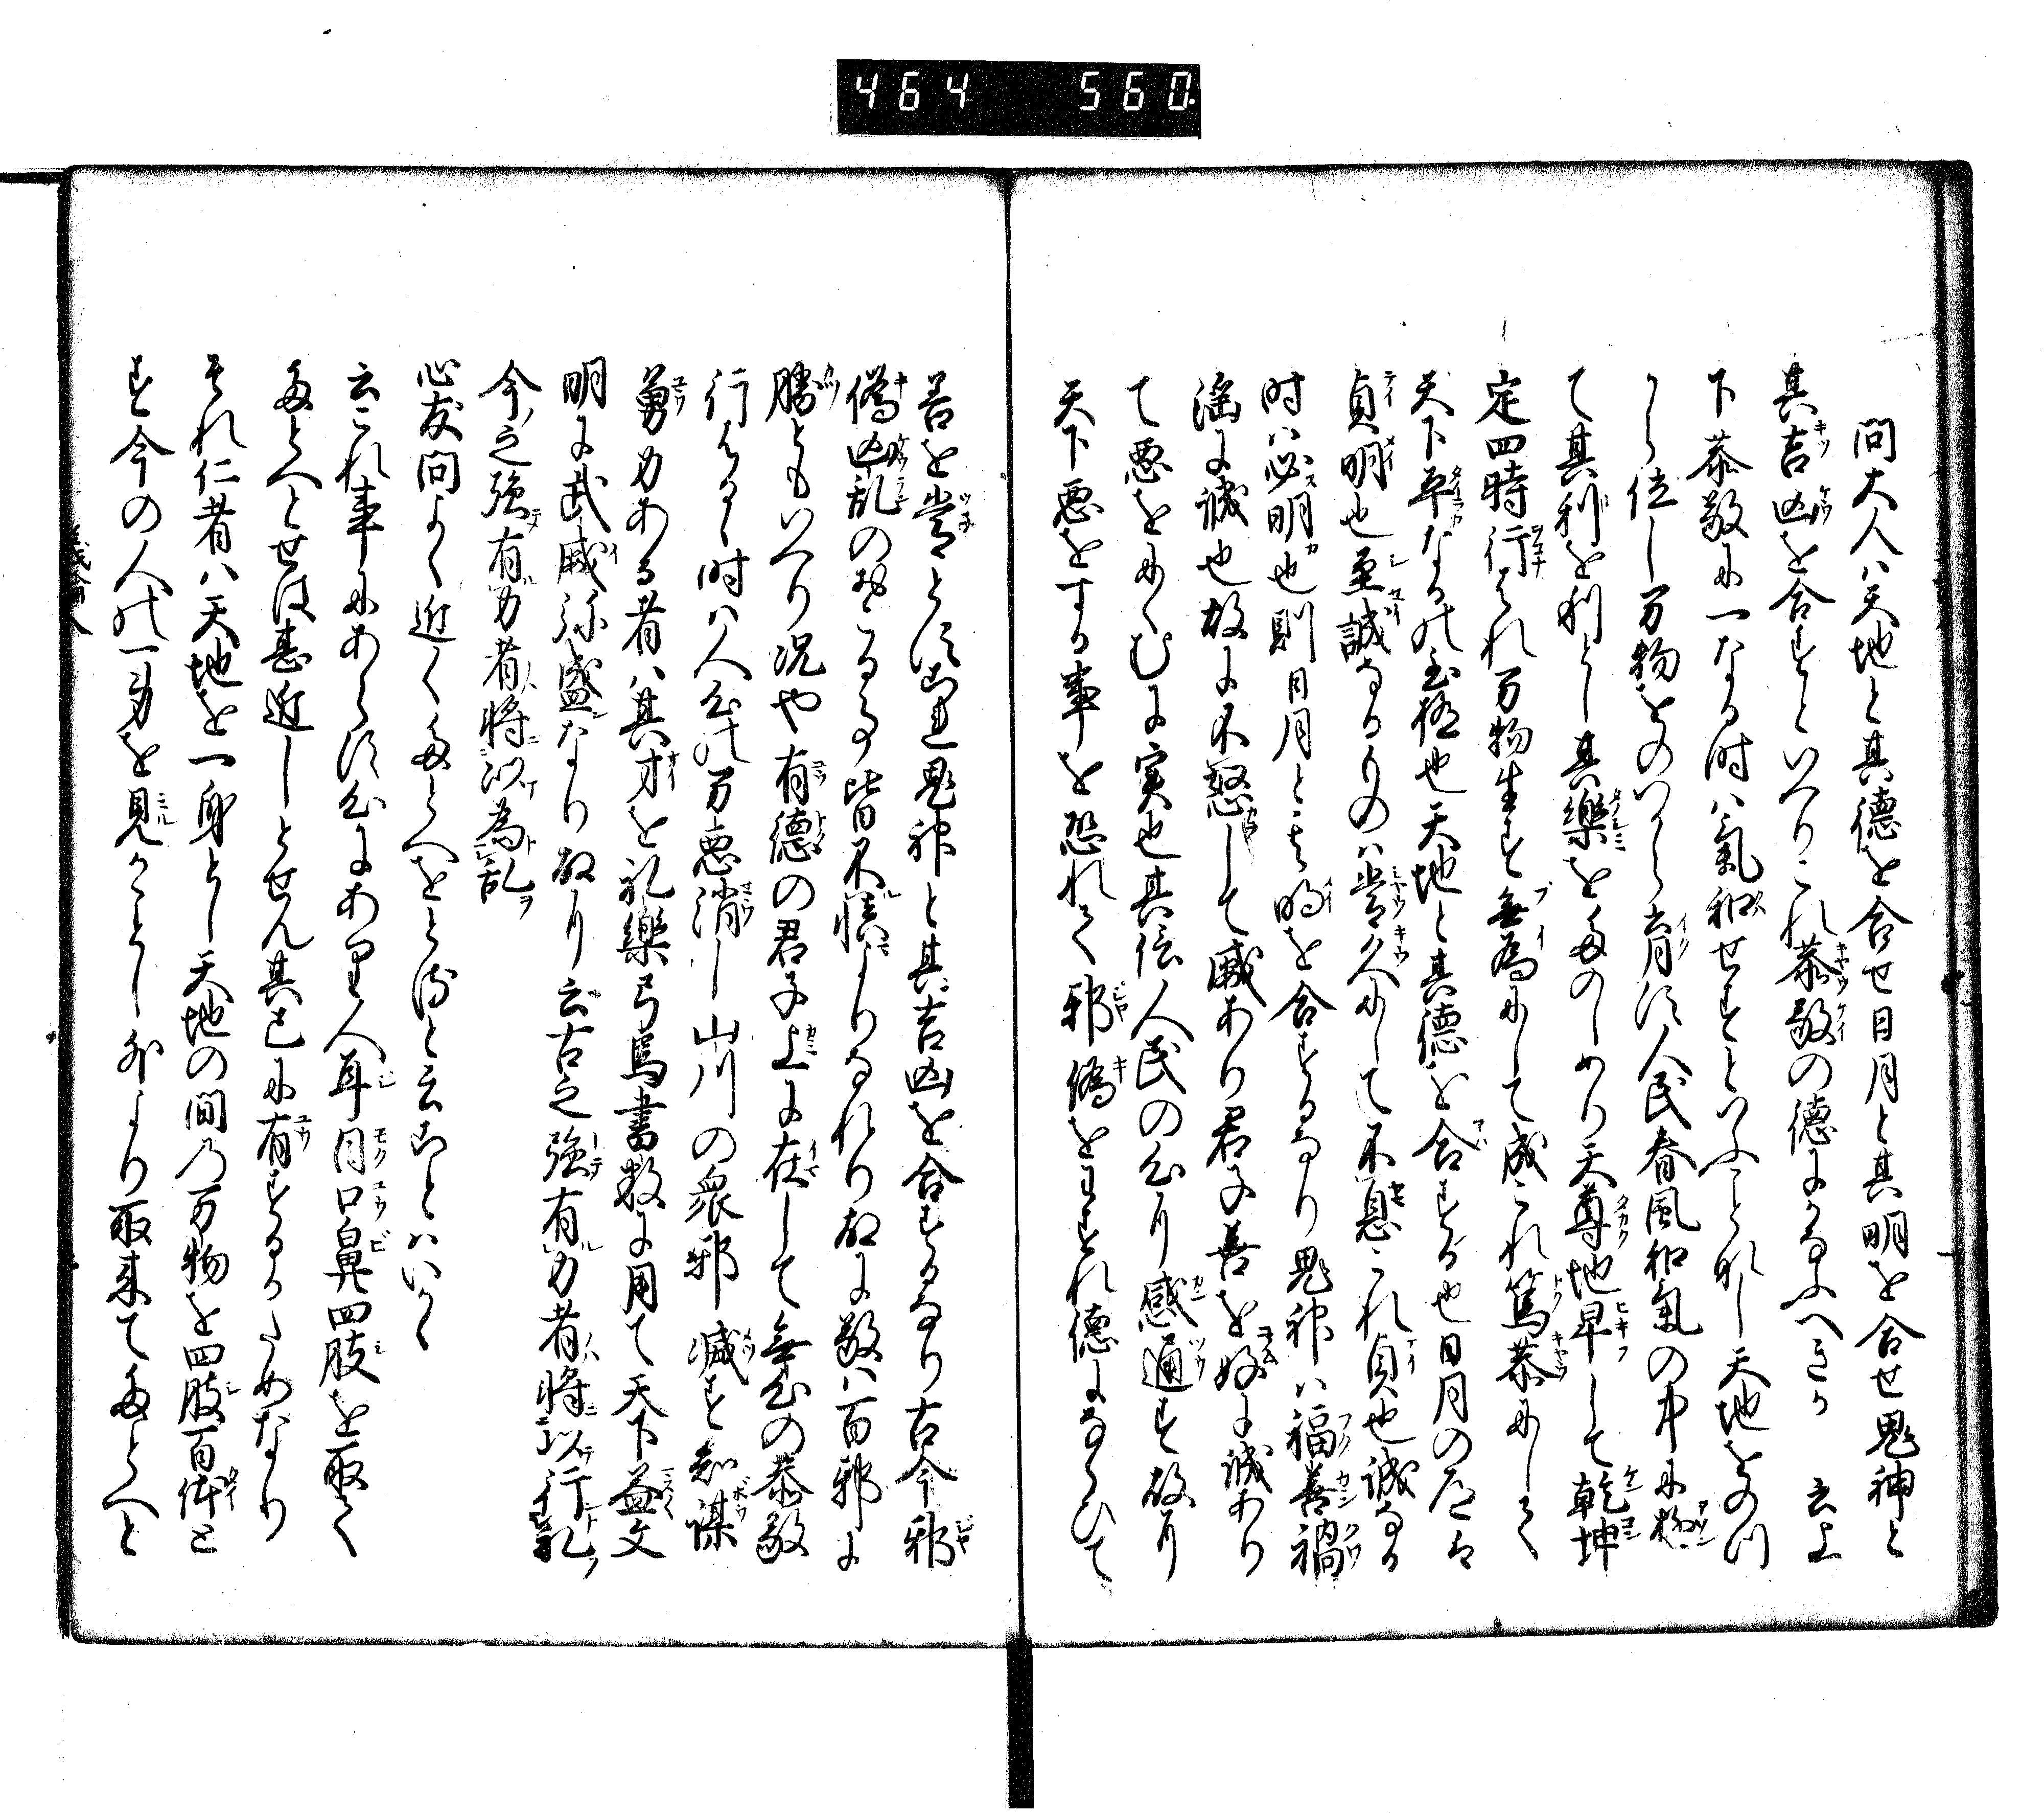 464 560
問大人ハ天地と其徳を合せ日月と其明を合せ鬼神と
其吉凶を合すといへりこれ恭敬の徳にかなふへきか 云上
下恭敬に一なる時ハ氣和せすといふことなし天地をのつ
から位し万物をのつから育す人民春風和氣の中に極
て其利を利とし其樂をたのしめり天尊地卑して乾坤
定四時行はれ万物生す無為にして成これ篤恭にして
天下平なるの至極也天地と其徳を合する也日月の道は
貞明也至誠なるものハ常久にして不息これ貞也誠なる
時ハ必明也則日月と其明を合するなり鬼神ハ福善禍
淫に誠也故に不怒して威あり君子善を好に誠あり
て悪をにくむに実也其信人民の心に感通す故に
天下悪をする事を恐れて邪偽をわすれ徳にならひて
善を常とす是鬼神と其吉凶を合するなり古今邪
偽凶乱のおこる事皆不慎よりなれり故に敬ハ百邪に
勝ともいへり况や有徳の君子上に在して無心の恭敬
行はるゝ時ハ人心の万悪消し山川の衆邪滅す知謀
勇力ある者ハ其才を礼樂弓馬書数に用て天下益文
明に武威弥盛なり故に云古之強有力者将以行礼
今之強有力者将以為乱
心友問よく近くたとへをとると云ことハいかゝ
云これ事にあらす心にあり人耳目口鼻四肢を取て
たとへとせは甚近しとせん其己に有するかためなり
それ仁者ハ天地を一身とし天地の間乃万物を四肢百体と
す今の人の一身を見かことし外より取来てたとへと